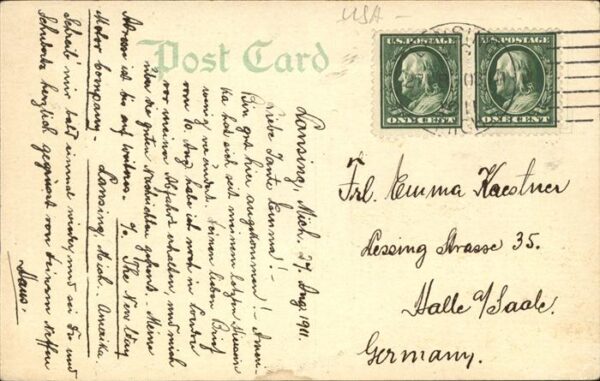 USA
Post Card
U.S. POSTAGE
ONE CENT
U.S. POSTAGE
ONE CENT
Lansing, Mich. 27. Aug. 1911.
Liebe Tante Emma! –
Bin gut hier angekommen! – Ameri-
ka hat sich seit meinem letzten Hiersein
wenig verändert. Deinen lieben Brief
vom 10. Aug habe ich noch in London
vor meiner Abfahrt erhalten, und mich
über die guten Nachrichten gefreut. Meine
Adresse ist bis auf weiteres: c/o The New Way
Motor Company – Lansing, Mich. Amerika.
Schreib' mir bald einmal wieder, und sei Du und
herzlich gegrüsst von Deinem Neffen
Hans.
Frl. Emma Kaestner
Lessing Strasse 35.
Halle a/Saale.
Germany.